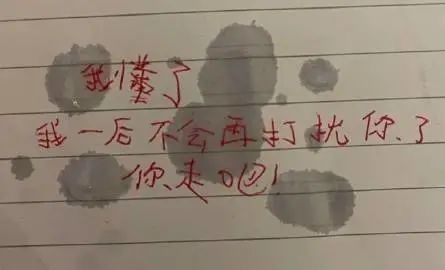 我懂了
我一后不会再打扰你了
你走吧!